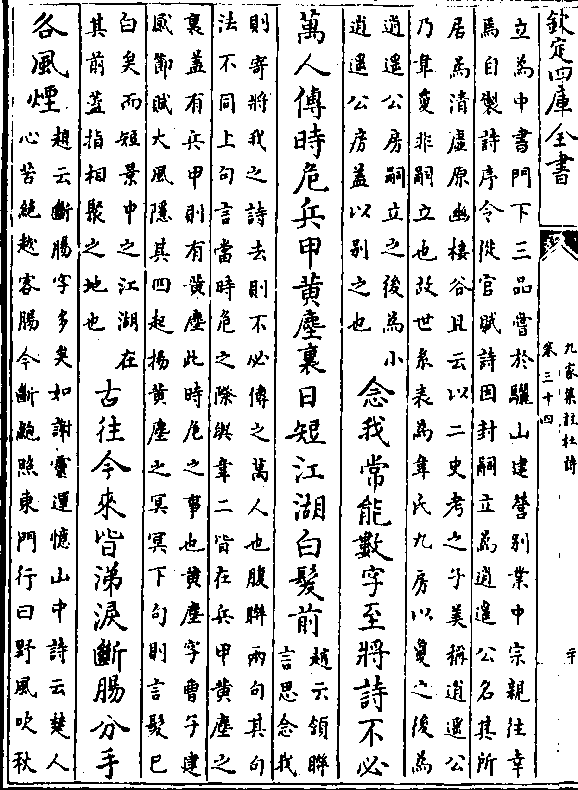 欽定四庫全書
九家集註杜詩
卷三十四
立為中書門下三品嘗於驪山建營别業中宗親往幸
焉自製詩序令從官賦詩因封嗣立為逍遥公名其所
居為清虚原幽棲谷且云以二史考之子美稱逍遥公
乃韋敻非嗣立也故世系表為韋氏九房以敻之後為
逍遥公房嗣立之後為小
逍遥公房蓋以别之也
念我常能數字至將詩不必
萬人傳時危兵甲黄塵裏日短江湖白髮前
趙云頷聯
言思念我
則寄將我之詩去則不必傳之萬人也腹聯兩句其句
法不同上句言當時危之際與韋二皆在兵甲黄塵之
裏蓋有兵甲則有黄塵此時危之事也黄塵字曹子建
感節賦大風隠其四起揚黄塵之冥冥下句則言髮已
白矣而短景中之江湖在
其前蓋指相聚之地也
古往今來皆涕淚斷腸分手
各風煙
趙云斷腸字多矣如謝靈運憶山中詩云楚人
心苦絶越客腸今斷鮑照東門行曰野風吹秋